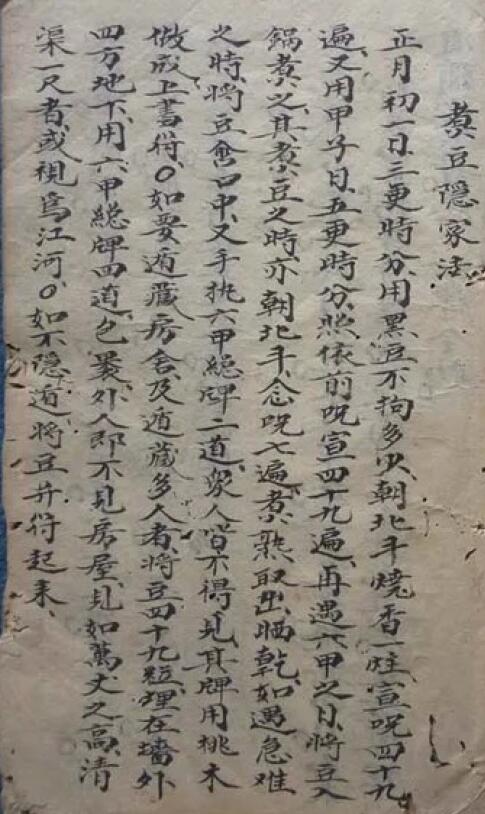 煮豆隐家法
正月初一日、三更時分、用黑豆不狗多少、朝北斗燒香一炷、宣呪四十九
遍、又用甲子日、五更時分、照依前呪宣四十九遍、再遇六甲之日、將豆入
鍋煮之、其煮豆之時、亦朝北斗、念呪七遍、煮熟取出、晒乾、如遇急难
之時、將豆含口中、又手执六甲總牌二道、衆人皆不得見、其牌用桃木
做成上書符。如要遁藏房舍、及遁藏多人者、將豆四十九粒、埋在墻外
四方地下、用六甲總牌四道、包裹、外人即不見房屋、見如萬丈之高、清
渠一尺者、或視爲江河。如不隐遁、將豆并符起来、